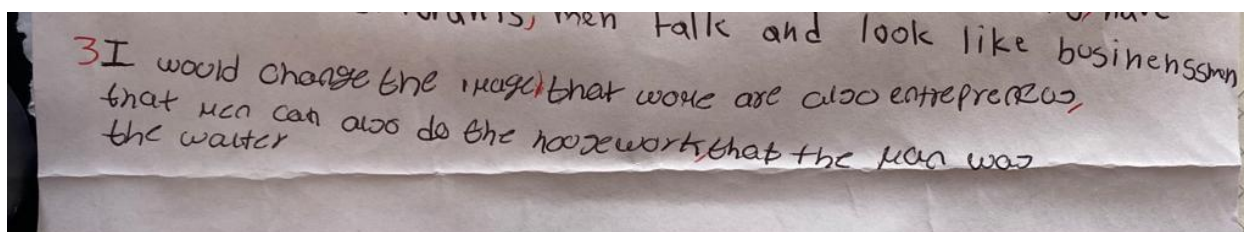 men talk and look like businenssmen
3 I would change the image, that wome are also entrepreneus,
that men can also do the housework, that the man was
the waiter